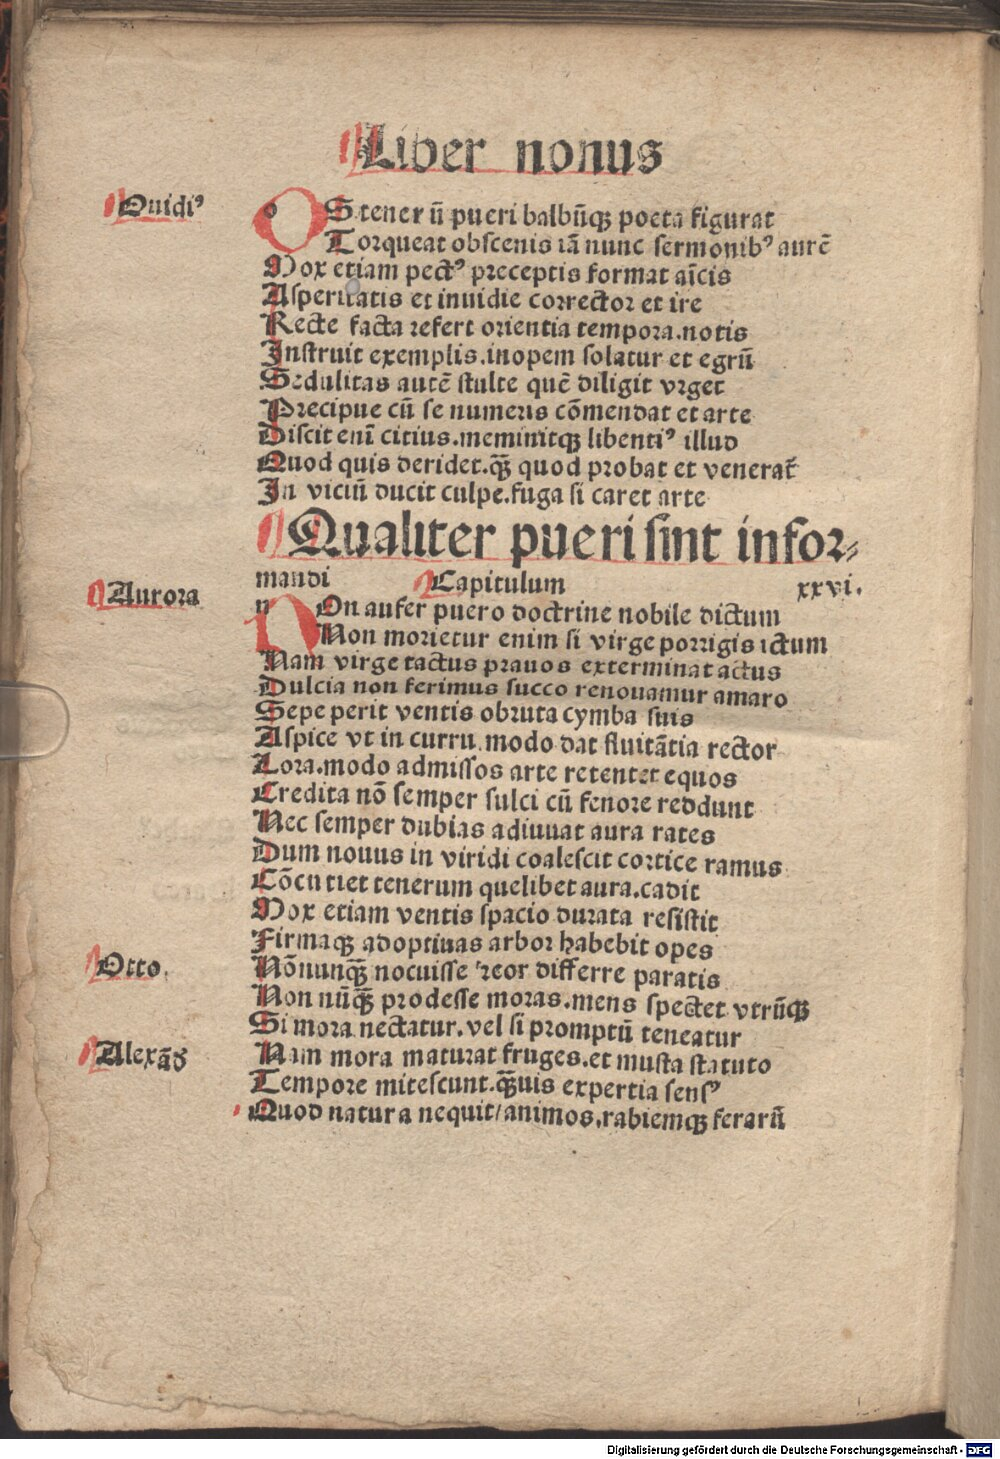 Liber nonus
Ouidiꝰ
OS tener ū pueri balbūqꝫ poeta figurat
Torqueat obscenis iā nunc sermonibꝰ aurē
Mox etiam pectꝰ preceptis format aīcis
Asperitatis et inuidie corrector et ire
Recte facta refert orientia tempora.notis
Instruit exemplis.inopem solatur et egrū
Sedulitas autē stulte quē diligit vrget
Precipue cū se numeris cōmendat et arte
Discit enī citius.meminitqꝫ libentiꝰ illud
Quod quis deridet.qꝫ̄ quod probat et venerat̄
In viciū ducit culpe.fuga si caret arte
Qualiter pueri sint infor⸗
mandi Capitulum xxvi.
Aurora
nOn aufer puero doctrine nobile dictum
Non morietur enim si virge porrigis ictum
Nam virge tactus prauos exterminat actus
Dulcia non ferimus succo renouamur amaro
Sepe perit ventis obruta cymba suis
Aspice vt in curru modo dat fluitātia rector
Lora.modo admissos arte retentet equos
Credita nō semper sulci cū fenore reddunt
Nec semper dubias adiuuat aura rates
Dum nouus in viridi coalescit cortice ramus
Cōcutiet tenerum quelibet aura.cadit
Mox etiam ventis spacio durata resistit
Firmaqꝫ adoptiuas arbor habebit opes
Otto.
Nōnunqꝫ̄ nocuisse reor differre paratis
Non nūqꝫ̄ prodesse moras.mens spectet vtrūqꝫ
Si mora nectatur.vel si promptū teneatur
Alexād
Nam mora maturat fruges.et musta statuto
Tempore mitescunt.qꝫ̄uis expertia sensꝰ
Quod natura nequit/animos,rabiemqꝫ ferarū
Digitalisierung gefördert durch die Deutsche Forschungsgemeinschaft - DFG